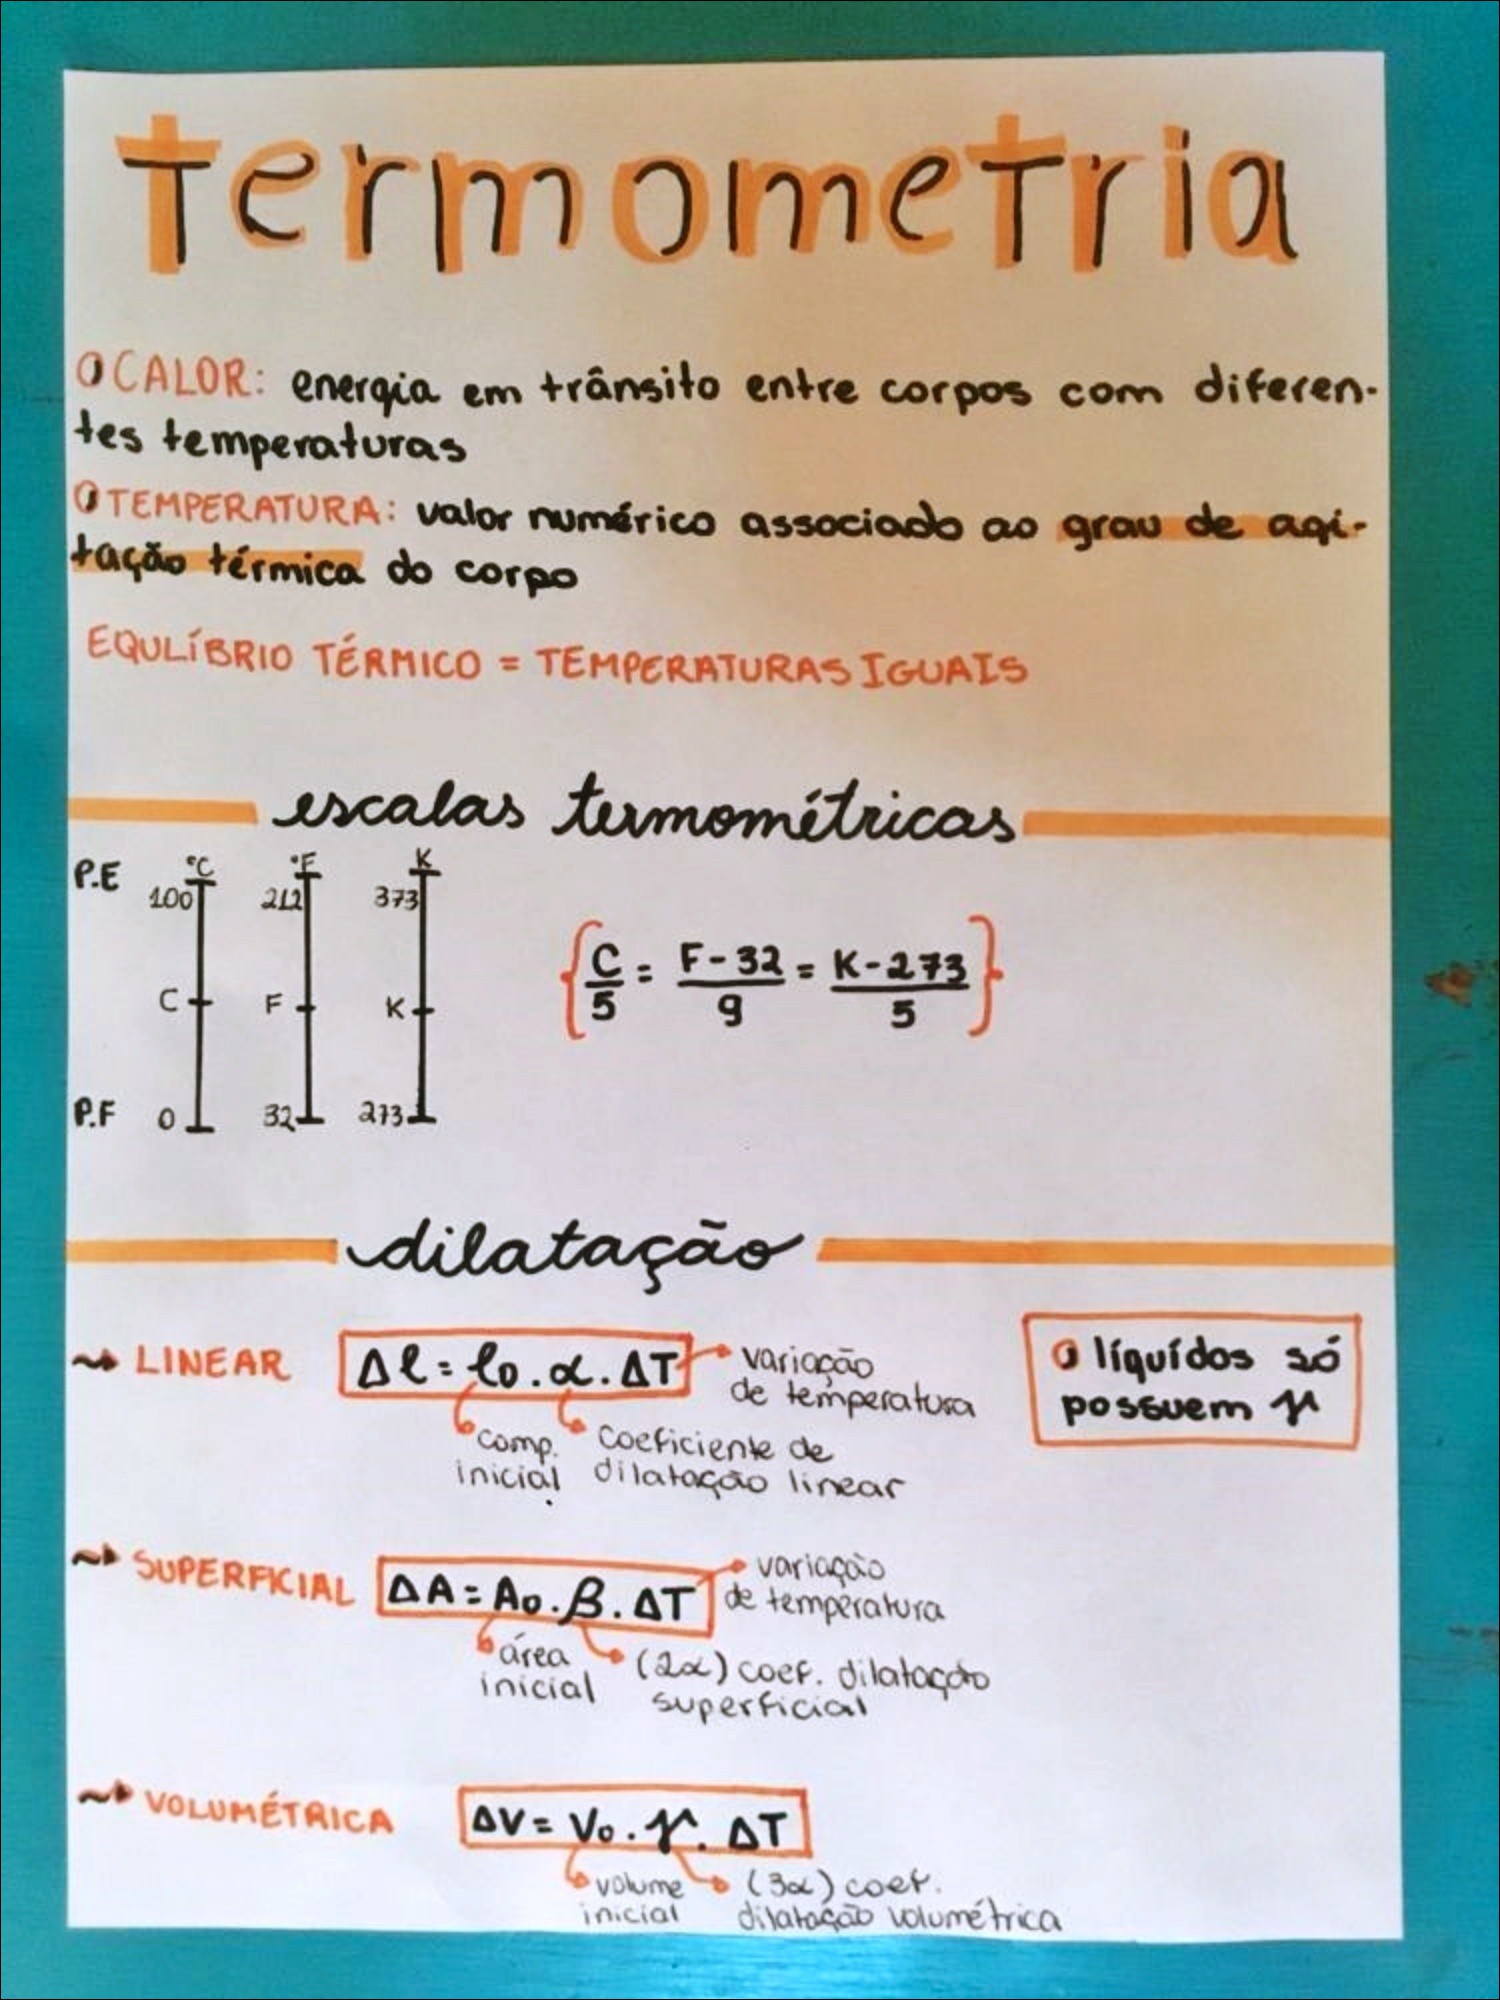 termometria
CALOR: energia em trânsito entre corpos com diferen-
tes temperaturas
TEMPERATURA: valor numérico associado ao grau de agi-
tação térmica do corpo
EQULÍBRIO TÉRMICO = TEMPERATURAS IGUAIS
escalas termométricas
P.E °C °F K
100 212 373
C F K
P.F 0 32 273
C/5 = F-32/9 = K-273/5
dilatação
LINEAR Δl = l0 . α . ΔT variação
de temperatura
comp. inicial
coeficiente de
dilatação linear
líquídos só
possuem γ
SUPERFICIAL ΔA = A0 . β . ΔT variação
de temperatura
área inicial
(2α) coef. dilatação
superficial
VOLUMÉTRICA ΔV = V0 . γ . ΔT
volume inicial
(3α) coef.
dilatação volumétrica